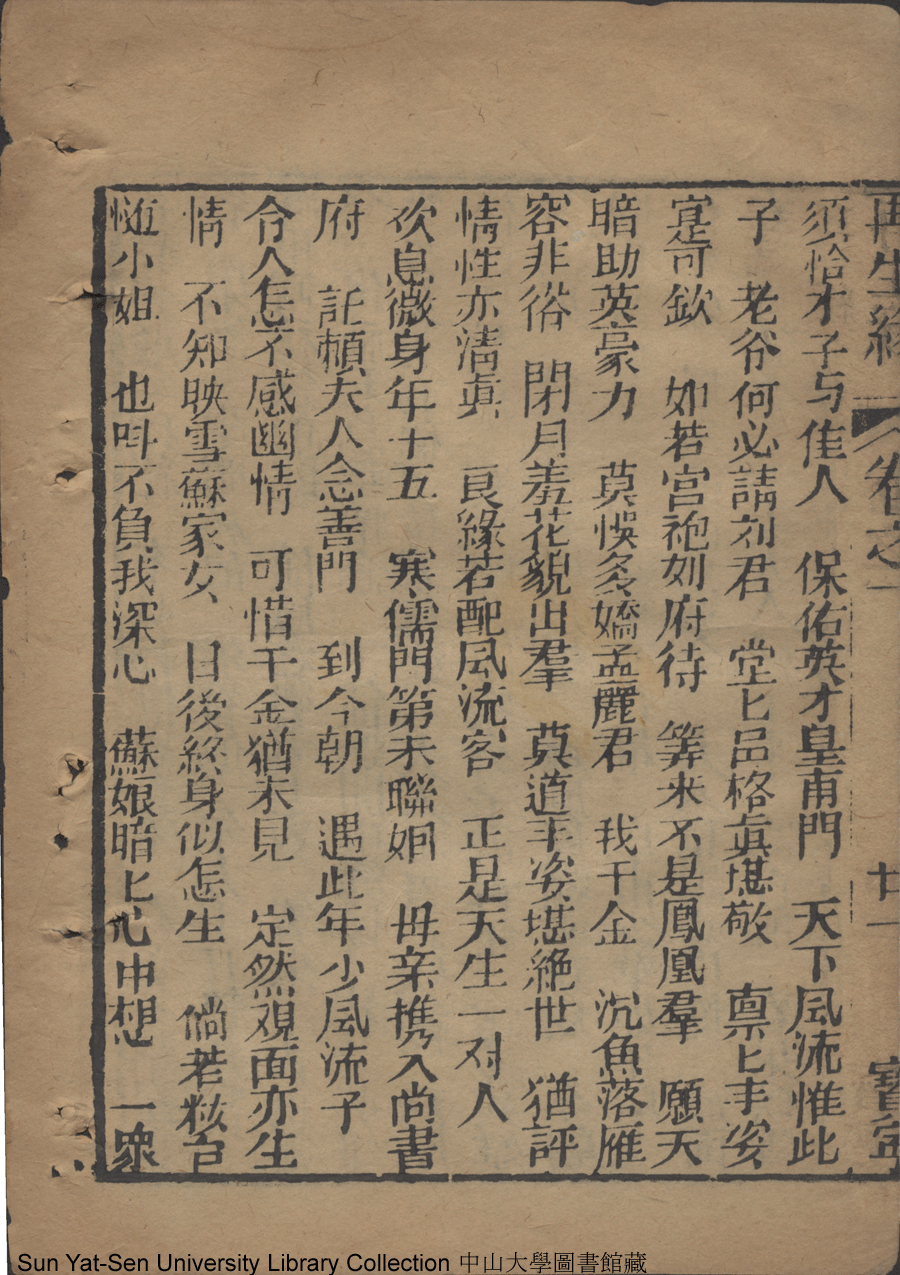 再生緣 卷之一 廿一
須恰才子与佳人 保佑英才皇甫門 天下風流惟此
子 老爷何必請刘君 堂匕品格眞堪敬 凛匕丰姿
寔可欽 如若宮袍如府待 筭来不是鳳凰羣 願天
暗助英豪力 莫悞多嬌孟麗君 我千金 沉魚落雁
容非俗 閉月羞花貌出羣 莫道丰姿堪絶世 猶評
情性亦清真 良緣若配風流客 正是天生一对人
欢息微身年十五 寒儒門第未聯姻 母亲携入尚書
府 託頼夫人念善門 到今朝 遇此年少風流子
令人怎不感幽情 可惜千金猶未見 定然覌面亦生
情 不知映雪蘇家女 日後終身似怎生 倘若粧台
随小姐 也呌不負我深心 蘇娘暗匕心中想 一眾
Sun Yat-Sen University Library Collection 中山大學圖書館藏